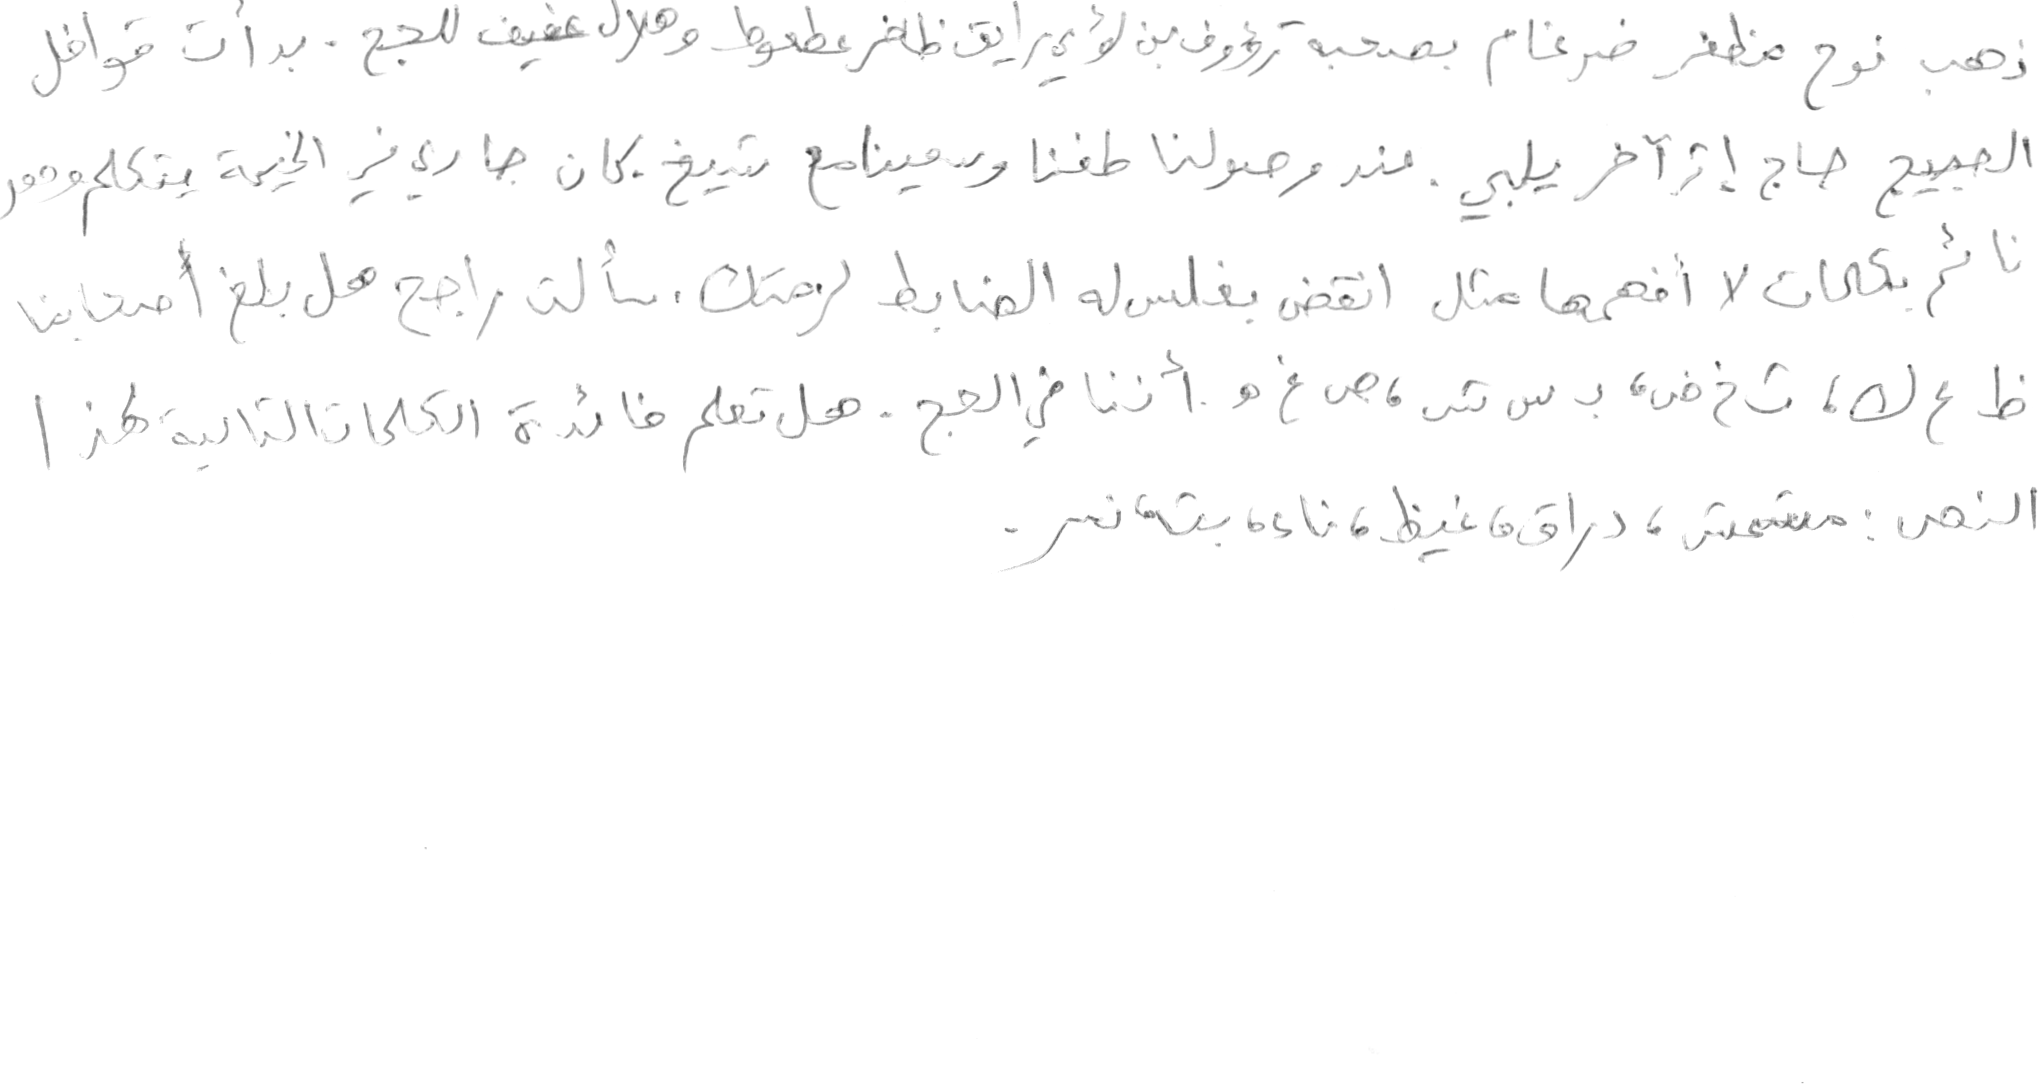 ذهب نوح مظفر ضرغام بصحبة رؤوف بن لؤي رايق ظافر عطعوط وهلال عفيف للحج . بدأت قوافل
الحجيج حاج إثر آخر يلبي . عند وصولنا طفنا وسعينا مع شيخ . كان جاري في الخيمة يتكلم وهو
نائم بكلمات لا أفهمها مثل انقض بغلس له الضابط . سألت راجح هل بلغ أصحابنا
ظ ع ك ، ث خ ض ، ب س ش ، ص غ و . أننا في الحج . هل تعلم فائدة الكلمات التالية لهذا
النص : مشمش ، دراق ، غيظ ، ناء ، بته ، نسر .